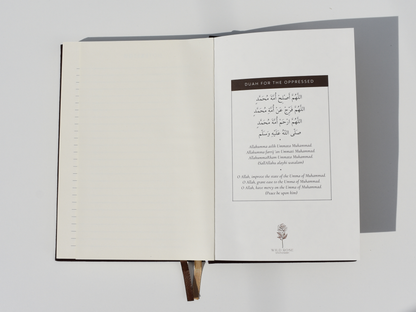 DUAH FOR THE OPPRESSED
اللَّهُمَّ أَصْلِحْ أُمَّةَ مُحَمَّدٍ
اللَّهُمَّ فَرِّجْ عَنْ أُمَّةِ مُحَمَّدٍ
اللَّهُمَّ ارْحَمْ أُمَّةَ مُحَمَّدٍ
صَلَّى اللَّهُ عَلَيْهِ وَسَلَّمَ
Allahumma aslih Ummata Muhammad.
Allahumma farrij 'an Ummati Muhammad.
Allahummarham Ummata Muhammad.
O Allah, improve the state of the Umma of Muhammad.
O Allah, grant ease to the Umma of Muhammad.
O Allah, have mercy on the Umma of Muhammad.
Please be upon him!